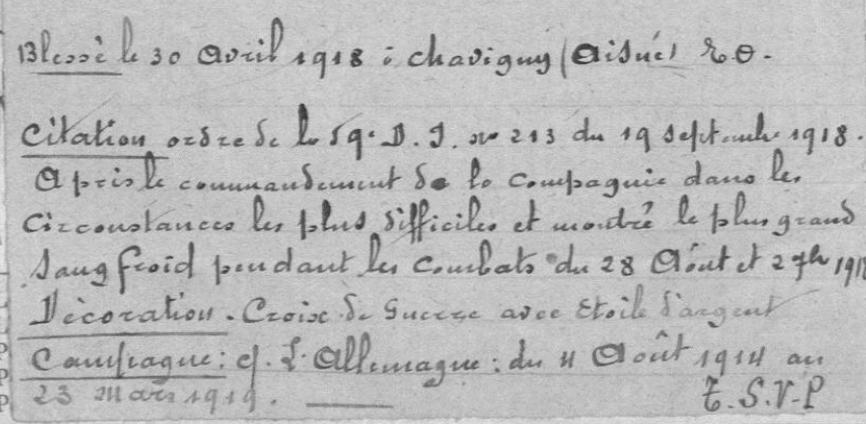 Blessé le 30 Avril 1918 à Chavigny (Aisne) E.O.
Citation ordre de la 59e D. I. no 213 du 19 Septembre 1918.
A pris le commandement de la Compagnie dans les
Circonstances les plus difficiles et montré le plus grand
Sang froid pendant les Combats du 28 Août et 2 7bre 1918
Décoration. Croix de Guerre avec Etoile d'argent
Campagne: c/. L'Allemagne: du 4 Août 1914 au
23 Mars 1919. T.S.V.P